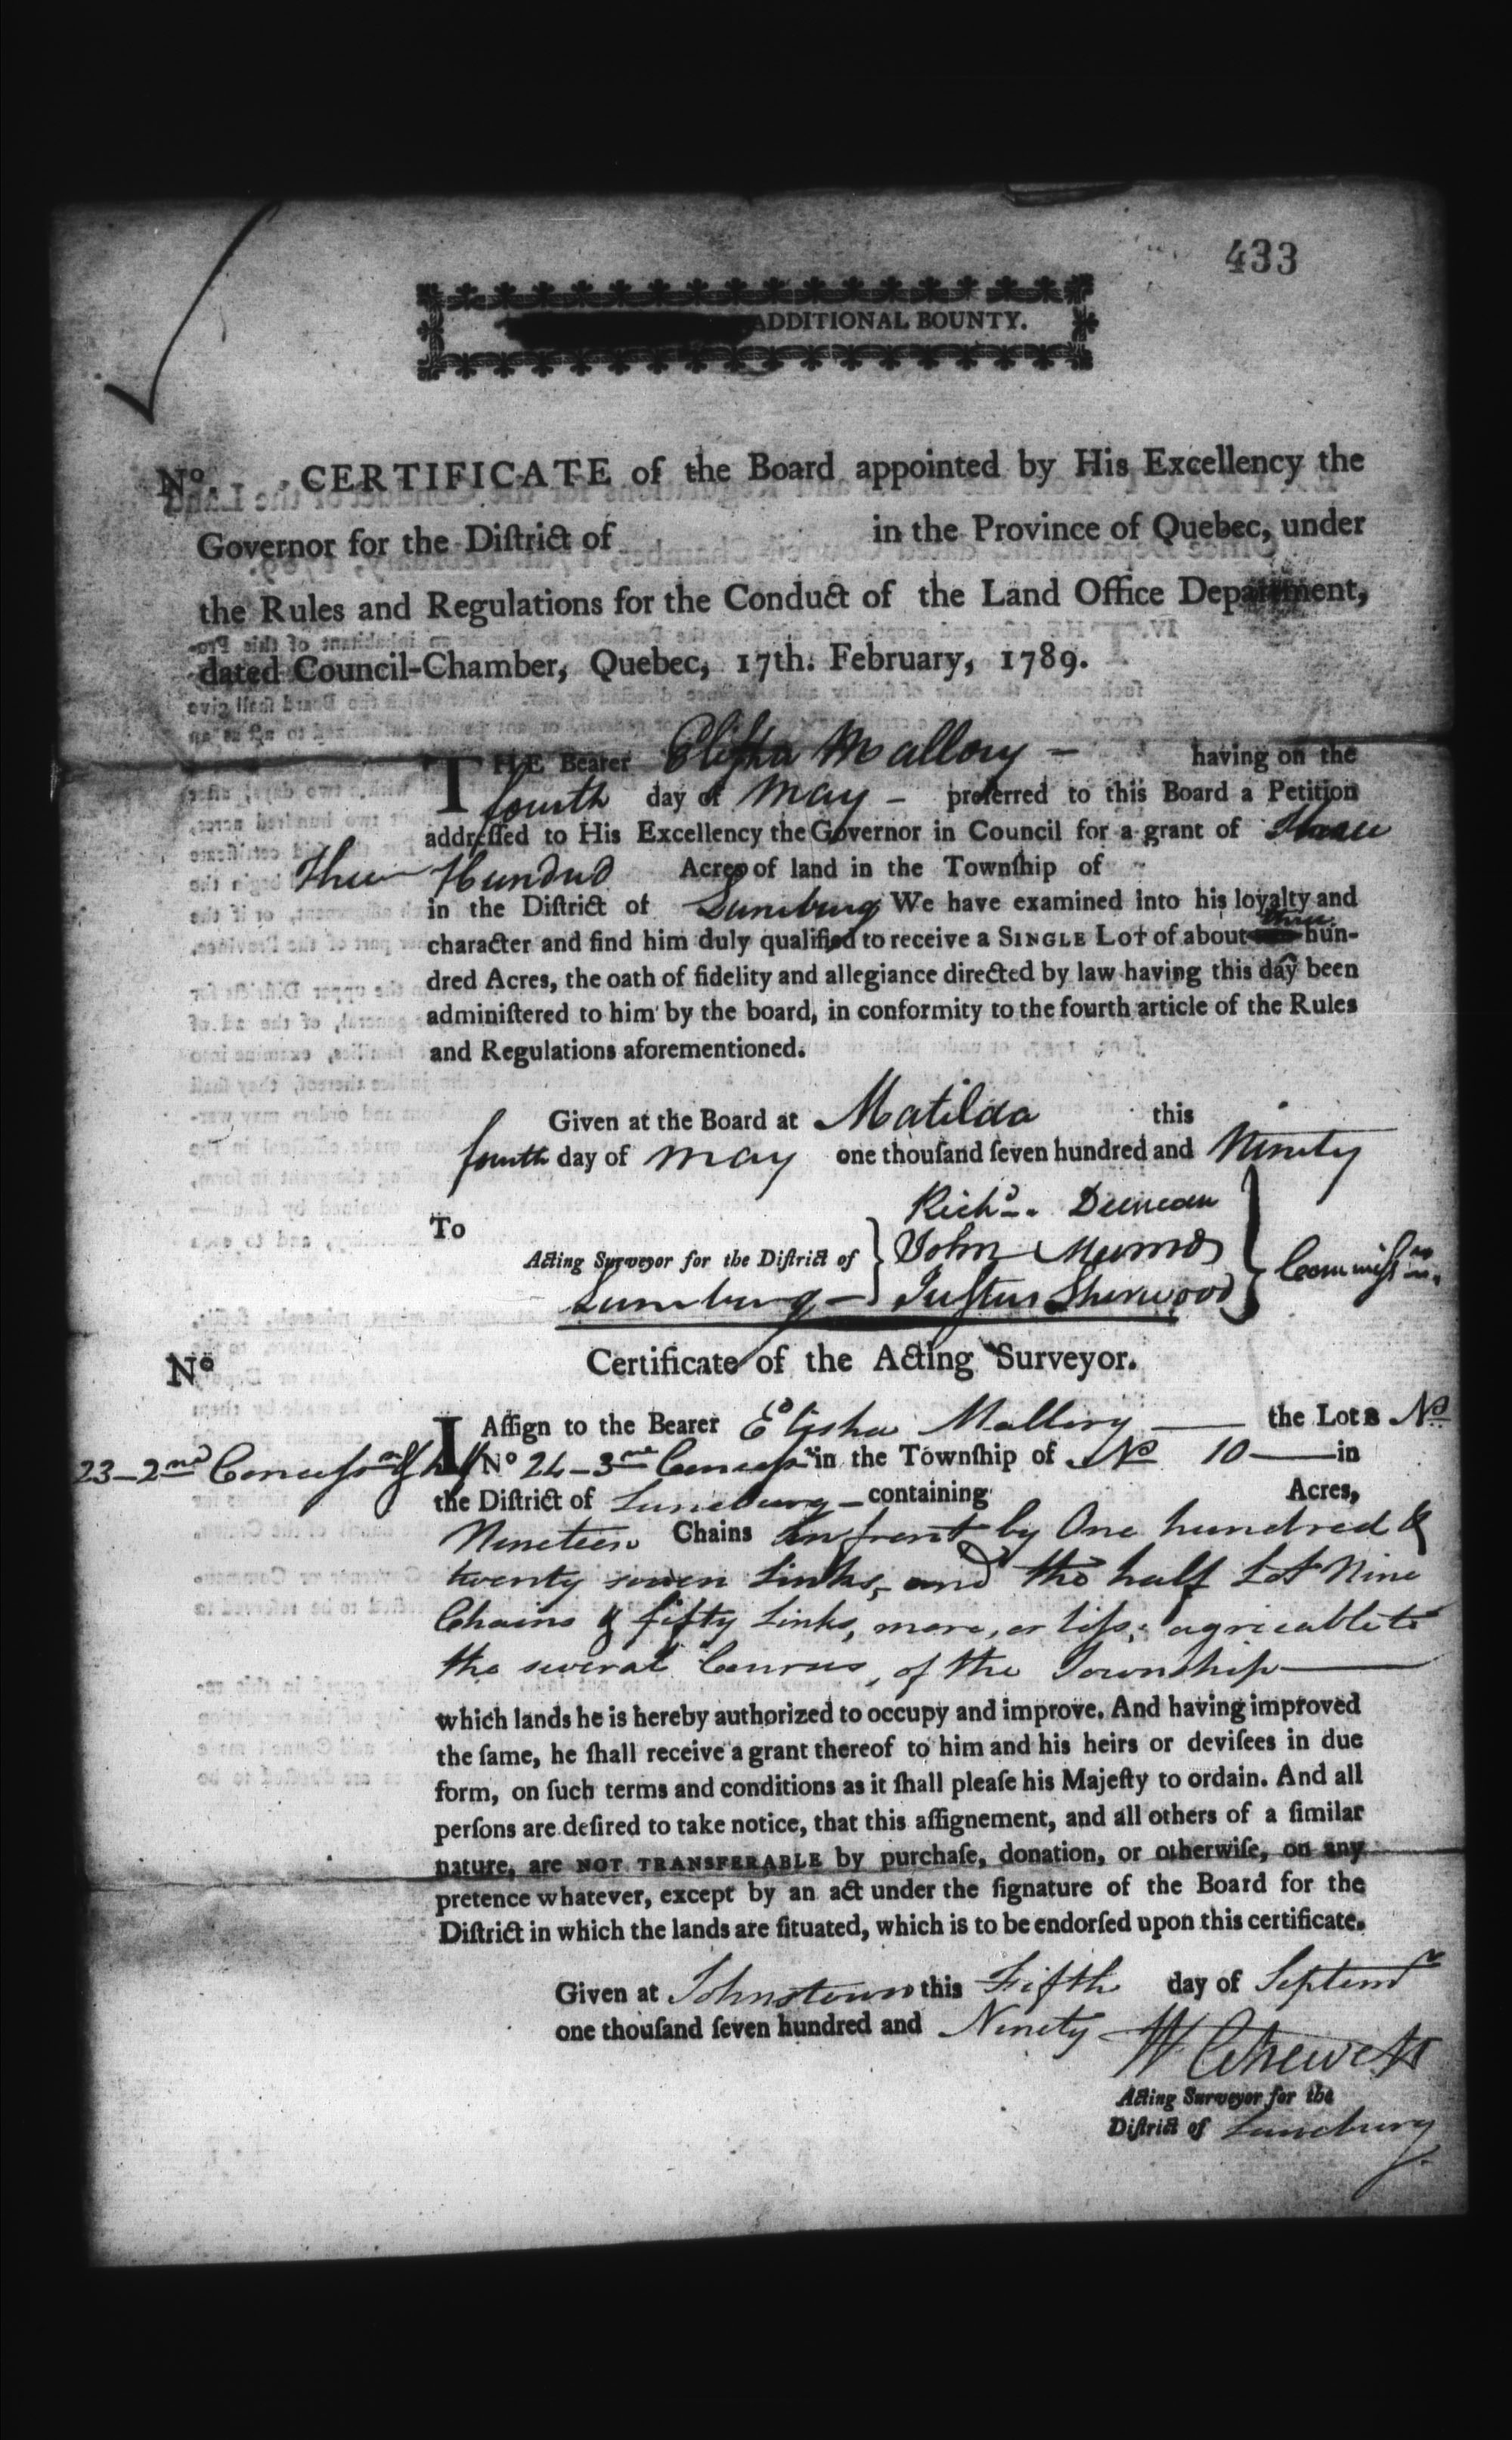 433
ADDITIONAL BOUNTY.
No. CERTIFICATE of the Board appointed by His Excellency the
Governor for the Diſtrict of in the Province of Quebec, under
the Rules and Regulations for the Conduct of the Land Office Department,
dated Council-Chamber, Quebec, 17th. February, 1789.
THE Bearer Eliſha Mallory – having on the
fourth day of May – preferred to this Board a Petition
addreſſed to His Excellency the Governor in Council for a grant of
Three Hundred Acres of land in the Townſhip of
in the Diſtrict of Luneburg We have examined into his loyalty and
character and find him duly qualified to receive a SINGLE LOT of about three hun-
dred Acres, the oath of fidelity and allegiance directed by law having this day been
adminiſtered to him by the board, in conformity to the fourth article of the Rules
and Regulations aforementioned.
Given at the Board at Matilda this
fourth day of May one thouſand ſeven hundred and Ninety
Richd. Duncan
To
John Munro
Acting Surveyor for the Diſtrict of
Commiſs
Luneburg – Juſtus Sherwood
No Certificate of the Acting Surveyor.
I Aſſign to the Bearer Elisha Mallory — the Lots No
23–2nd Conceſs and half No 24–3rd Conceſs in the Townſhip of No 10 — in
the Diſtrict of Luneburg – containing Acres,
Nineteen Chains in front by One hundred &
twenty seven Links, and the half Lot Nine
Chains & fifty Links, more, or leſs; agreeable to
the several Courses, of the Township —
which lands he is hereby authorized to occupy and improve. And having improved
the ſame, he ſhall receive a grant thereof to him and his heirs or deviſees in due
form, on ſuch terms and conditions as it ſhall pleaſe his Majeſty to ordain. And all
perſons are deſired to take notice, that this aſſignement, and all others of a ſimilar
nature, are NOT TRANSFERABLE by purchaſe, donation, or otherwiſe, on any
pretence whatever, except by an act under the ſignature of the Board for the
Diſtrict in which the lands are ſituated, which is to be endorſed upon this certificate.
Given at Johnstown this Fifth day of Septemr
one thouſand ſeven hundred and Ninety
W Chewett
Acting Surveyor for the
Diſtrict of Luneburg